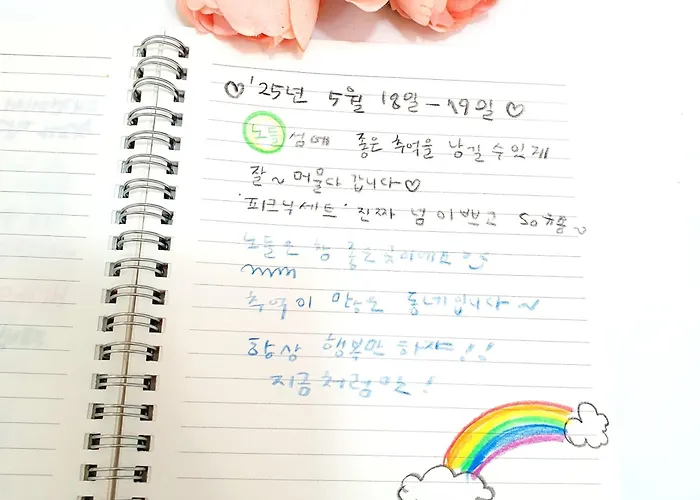 ♡ '25년 5월 18일 - 19일 ♡
노들섬에 좋은 추억을 남길 수 있게
잘~ 머물다 갑니다♡
'피크닉세트' 진짜 넘 이쁘고 so 굿굿~
노들은 참 좋은
추억이 많은 동네입니다~
항상 행복만 하자!!
지금처럼만!